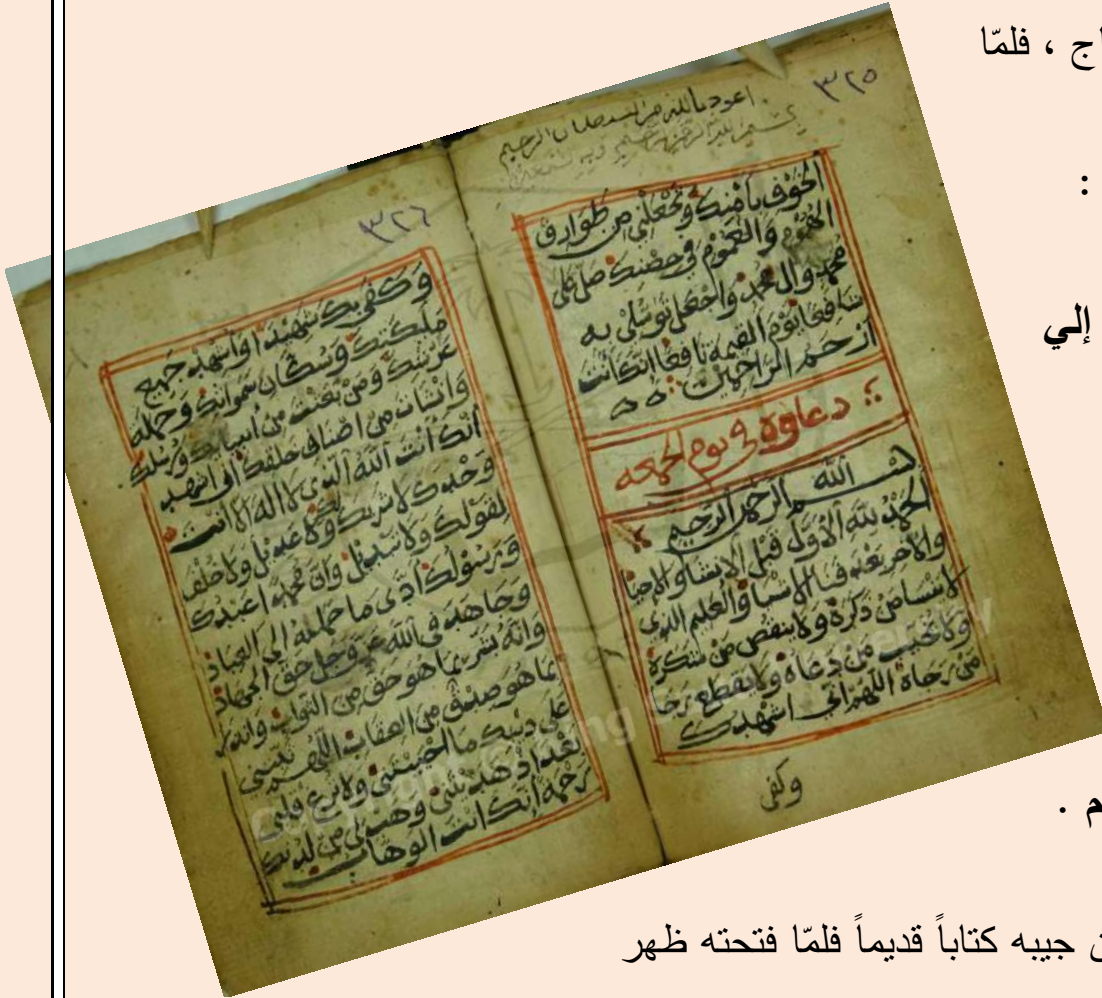 اج ، فلمّا
:
إلي
م .
ن جيبه كتاباً قديماً فلمّا فتحته ظهر
٣٢٥
اعوذ بالله من الشيطان الرجيم
بسم الله الرحمن الرحيم وبه نستعين
الخوف بامنك وتجعلني من طوارق
الهموم والغموم في حصنك صل على
محمد وال محمد واجعل توسلي به
شافعا يوم القيمه نافعا انك انت
ارحم الراحمين
دعاوه في يوم الجمعه
بسم الله الرحمن الرحيم
الحمد لله الاول قبل الانشا والاحيا
والاخر بعد فنا الاشيا والعليم الذي
لا ينسا من ذكره ولا ينقص من شكره
ولا يخيب من دعاه ولا يقطع رجا
من رجاه اللهم اني اشهدك
وكفى
٣٢٦
وكفى بك شهيدا واشهد جميع
ملئكتك وسكان سمواتك وحملة
عرشك ومن بعثت من انبيائك ورسلك
وانشات من اصناف خلقك اني اشهد
انك انت الله الذي لا اله الا انت
وحدك لا شريك لك ولا عديل ولا خلف
لقولك ولا تبديل وان محمد اعبدك
ورسولك ادى ما حملته الى العباد
وجاهد في الله عز وجل حق الجهاد
وانه بشر بما هو حق من الثواب وانذر
بما هو صدق من العقاب اللهم ثبتني
على دينك ما احييتني ولا تزغ قلبي
بعد اذ هديتني وهب لي من لدنك
رحمة انك انت الوهاب